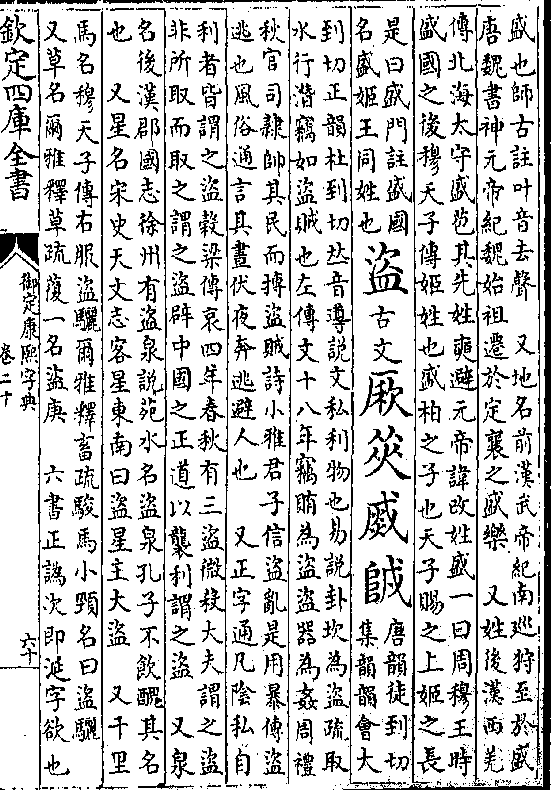 盛也師古註叶音去聲　又地名前漢武帝紀南廵狩至於盛
唐魏書神元帝紀魏始祖遷於定襄之盛樂　又姓後漢西羌
傳北海太守盛苞其先姓奭避元帝諱改姓盛一曰周穆王時
盛國之後穆天子傳姬姓也盛柏之子也天子賜之上姬之長
是曰盛門註盛國
名盛姬王同姓也
盜 古文
唐韻徒到切
集韻韻會大
到切正韻杜到切𠀤音導說文私利物也易說卦坎為盜疏取
水行潛竊如盜賊也左傳文十八年竊賄為盜盜器為姦周禮
秋官司隸帥其民而搏盜賊詩小雅君子信盜亂是用暴傳盜
逃也風俗通言其晝伏夜奔逃避人也　又正字通凡陰私自
利者皆謂之盜穀梁傳哀四年春秋有三盜微殺大夫謂之盜
非所取而取之謂之盜辟中國之正道以襲利謂之盜　又泉
名後漢郡國志徐州有盜泉說苑水名盜泉孔子不飲醜其名
也　又星名宋史天文志客星東南曰盜星主大盜　又千里
馬名穆天子傳右服盜驪爾雅釋畜疏駿馬小頸名曰盜驪
又草名爾雅釋草疏蕧一名盜庚　六書正譌㳄即涎字欲也
欽定四庫全書
御定康熙字典
卷二十
六十